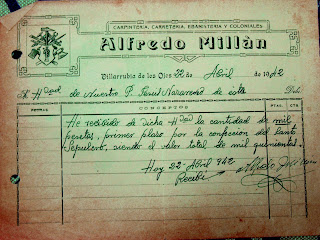 CARPINTERIA, CARRETERIA, EBANISTERIA Y COLONIALES
Alfredo Millán
Villarrubia de los Ojos 22 de Abril de 1942
Hdad de Nuestro P. Jesus Nazareno de esta Debe
FECHAS CONCEPTOS PTAS. CTS.
He recibido de dicha Hdad la cantidad de mil
pesetas, primer plazo por la confección del Santo
Sepulcro, siendo el valor total de mil quinientas.
Hoy 22-Abril 942
Recibí
Alfredo Millan